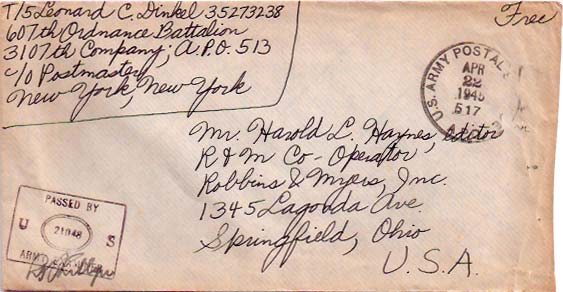 T/5 Leonard C. Dinkel 35273238
607th Ordnance Battalion
3107th Company; A.P.O. 513
c/o Postmaster
New York, New York
Free
U.S. ARMY POSTAL
APR
22
1945
517
Mr. Harold L. Haynes, editor
R & M Co-Operator
Robbins & Myers, Inc.
1345 Lagonda Ave.
Springfield, Ohio
U.S.A.
PASSED BY
U 21048 S
ARMY EXAMINER